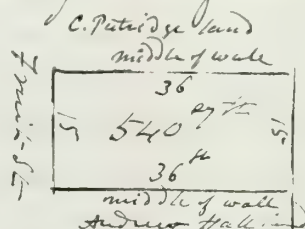 C. Putridge land
middle of wall
36
15
540 sq ft
15
36 ft
middle of wall
Andrew Hall